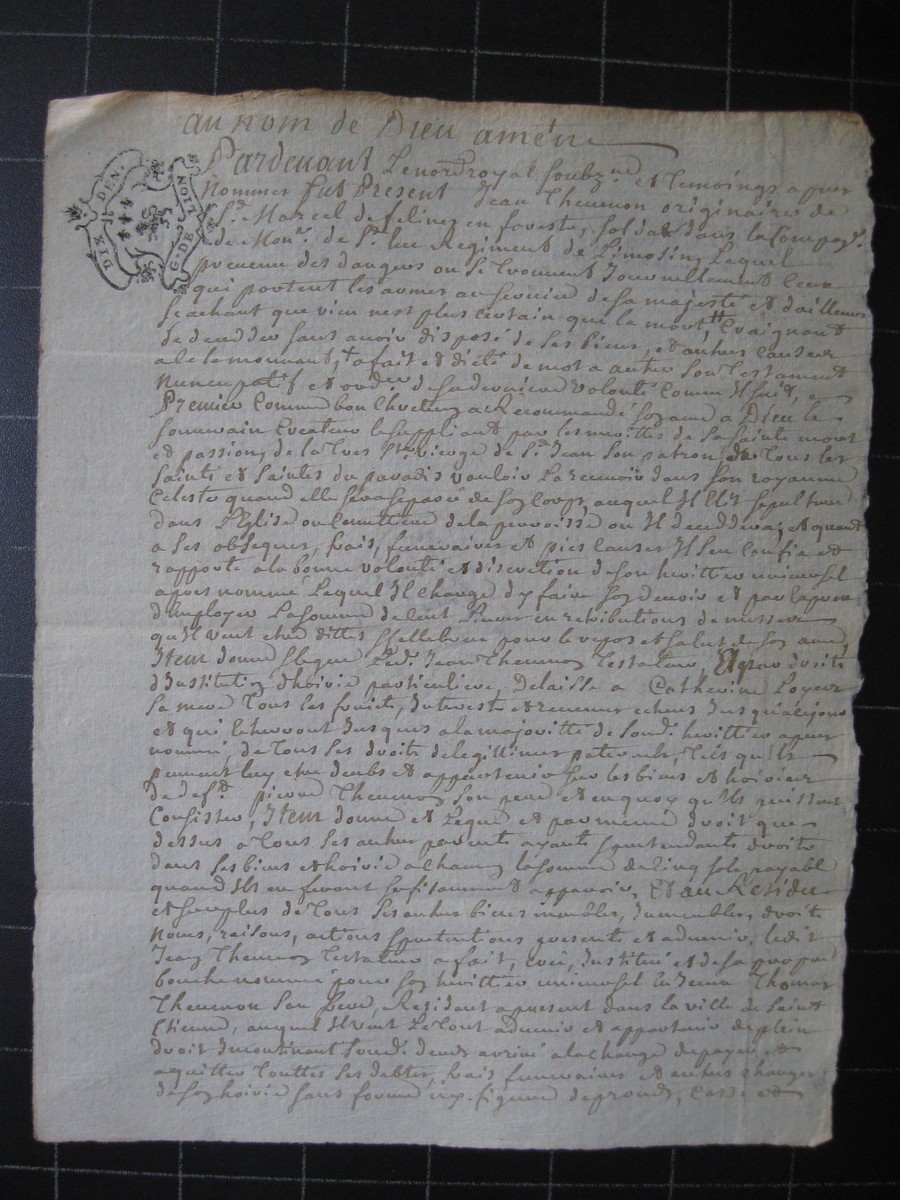 au nom de Dieu amen
DIX DEN.
G. DE LION
Pardevant Le no.re royal soubz.né et temoings apres
nommes fut Present Jean Thevenon originaires de
S.t Marcel de felines en forests, soldat dans la Compag.e
de Mon.r de S.t luc Regiment de Limosin, Lequel
prevenu des dangers ou se trouvent Journellement ceux
qui portent les armes au service de sa majesté et d'ailleurs
sachant que rien n'est plus certain que la mort, Craignant
de decedder sans avoir disposé de ses biens, et autres causes
a ce le mouvant, a fait et dicté de mot a autre son Testament
nuncupatif et ord.ce de sa derniere volonté comme s'en suit,
Premier Comme bon Chretien a Recommandé son ame a Dieu le
souverain Createur le suppliant par les merittes de sa sainte mort
et passion, de la tres S.te Vierge de S.t Jean son patron de tous les
saints et saintes du paradis vouloir La recevoir dans son royaume
Celeste quand elle sera separée de son Corps, auquel Il Elit sepulture
dans L'Eglise ou Cimetiere de la parroisse ou Il deceddera, et quant
a ses obseques, frais, funeraires et pies causes Il s'en confie et
rapporte a la bonne volonté et discretion de son herittier universel
apres nommé Lequel Il charge d'y faire son devoir et par la preuve
d'employer La somme de cent livres en retributions de messes
qu'Il veut estre dittes et celebrées pour le repos et salut de son ame,
Item donne et legue Led. Jean Thevenon Testateur, Et par droit
d'Institution d'hoirie particuliere, delaisse a Catherine Loyeux
sa mere tous les fruits, Interests et revenus echeus Jusqu'a ce jour
et qui echerront Jusques a la majoritté de sond. herittier apres
nommé, de tous ses droits de legittimes paternels, tels qu'Ils
peuvent luy etre deubs et appartenir sur les biens et hoiries
de def.t pierre Thevenon son pere et en quoy qu'Ils puissent
Consister, Item donne et Legue et par meme droit que
dessus a tous ses autres parents ayants et pretendants droits
dans ses biens et hoirie a chacun la somme de cinq sols payable
quand Ils en feront suffisamment apparoir, Et au Residu
et surplus de tous ses autres biens meubles, Immeubles, droits
noms, raisons, actions et pretentions presents et advenir, ledit
Jean Thevenon Testateur a fait, créé, Institué et de sa propre
bouche nommé pour son herittier universel Thomas
Thevenon son frere, Residant a present dans la ville de Saint
Etienne, auquel Il veut Le tout advenir et appartenir de plein
droit Incontinant sond. deceds arrivé a la charge de payer et
aquitter touttes ses debtes, frais funeraires et autres charges
de son hoirie sans forme ny figure de procès, casse et